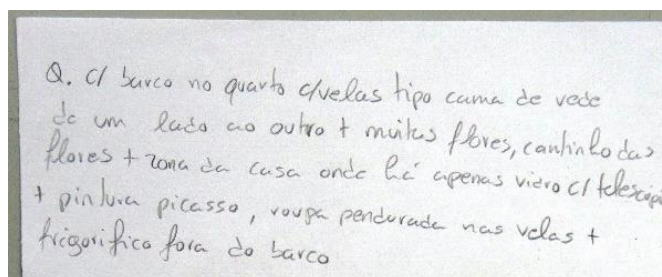 Q. c/ barco no quarto c/velas tipo cama de rede
de um lado ao outro + muitas flores, cantinho das
flores + zona da casa onde há apenas vidro c/ telescópi
+ pintura picasso, roupa pendurada nas velas +
frigorifico fora do barco